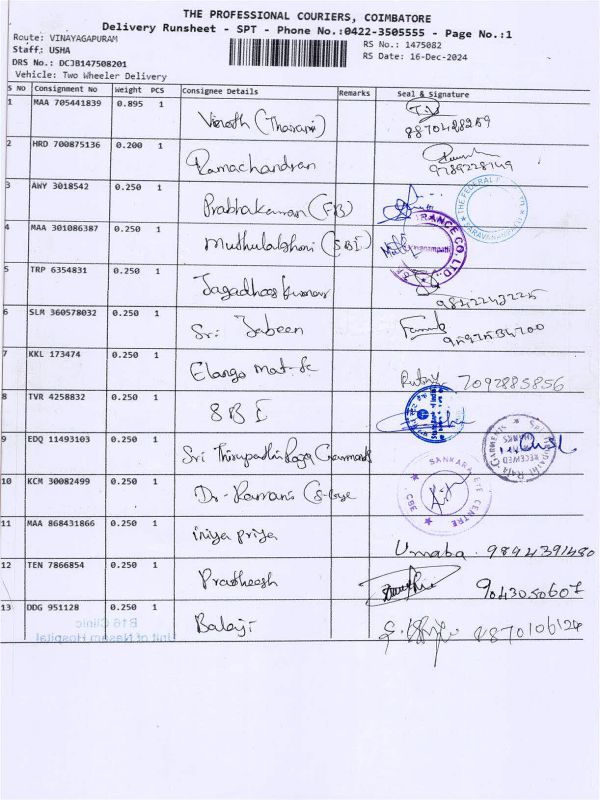 THE PROFESSIONAL COURIERS, COIMBATORE
Delivery Runsheet - SPT - Phone No.:0422-3505555 - Page No.:1
Route: VINAYAGAPURAM
RS No.: 1475082
Staff: USHA
RS Date: 16-Dec-2024
DRS No.: DCJB147508201
Vehicle: Two Wheeler Delivery
S NO Consignment No Weight PCS Consignee Details Remarks Seal & Signature
1 MAA 705441839 0.895 1 Vinoth (Tharani)
2 HRD 700875136 0.200 1 Ramachandran
3 AWY 3018542 0.250 1 Prabhakaran (FB)
THE FEDERAL
4 MAA 301086387 0.250 1 Muthulakshmi (SBI)
RANCE CO. LTD.
5 TRP 6354831 0.250 1 Jagadhees kumar 9842243225
6 SLM 360578032 0.250 1 Sri Jabeen
7 KKL 173474 0.250 1 Elango mat 7092885856
8 TVR 4258832 0.250 1 SBI
9 EDQ 11493103 0.250 1 Sri Thirupathi Raja Garments
RAJA GARMENTS RECEIVED
10 KCM 30082499 0.250 1 Dr. Ramani
SANKARA EYE CENTRE CBE
11 MAA 868431866 0.250 1 iniya priya Umaba. 9894391480
12 TEN 7866854 0.250 1 Pratheesh 9043050607
13 DDG 951128 0.250 1 Balaji
B16 Clinic
Unit of Nasam Hospital